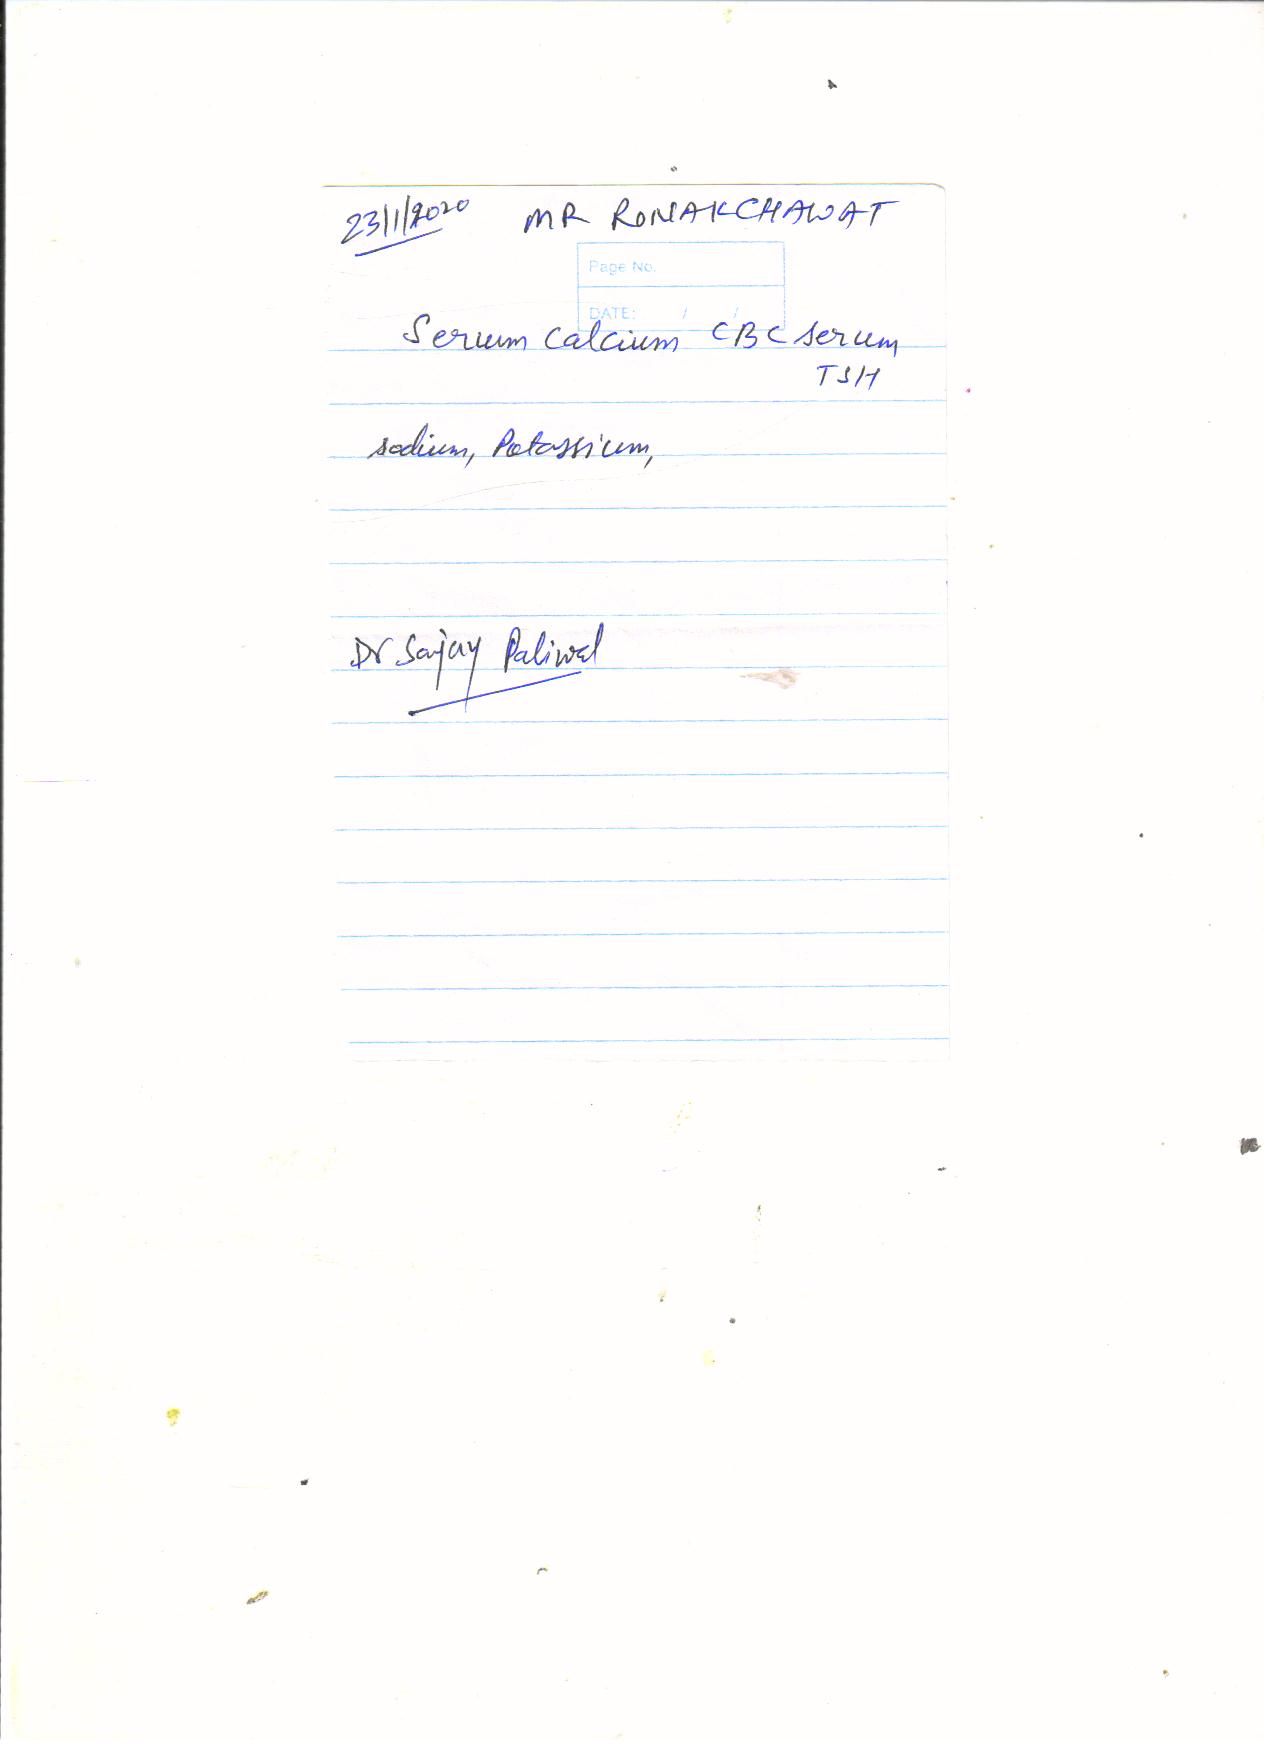 23/1/2020 MR RONAKCHAWAT
Page No.
DATE: / /
Serum Calcium CBC serum
TSH
sodium, Potassium,
Dr Sanjay Paliwal